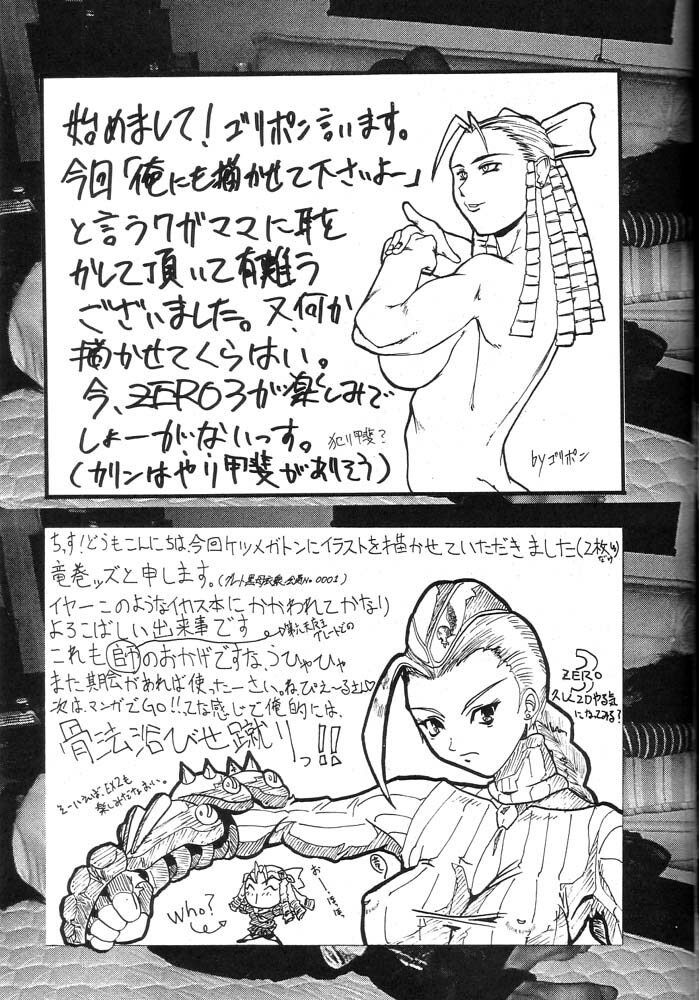 始めまして！ゴリポン言います。
今回「俺にも描かせて下さいよー」
と言うワガママに耳を
かして頂いて有難う
ございました。又、何か
描かせてくらはい。
今、ZERO3が楽しみで
しょーがないっす。
(カリンはやり甲斐がありそう)
犯り甲斐？
byゴリポン
ちっす！どうもこんにちは、今回ケツメガトンにイラストを描かせていただきました(2枚
竜巻ッズと申します。
イヤーこのようなイカス本にかかわれてかなり
よろこばしい出来事です
これも師のおかげですなうひゃひゃ
また期会があれば使ったーさい。ねぴえ〜るさん♡
次は、マンガでGO!!てな感じで俺的には、
骨法浴びせ蹴りっ!!
そーいえば、EX2も
楽しみだなおい。
ZERO3
久しく2Dやる気
になってみる？
Who?
おーほほほ